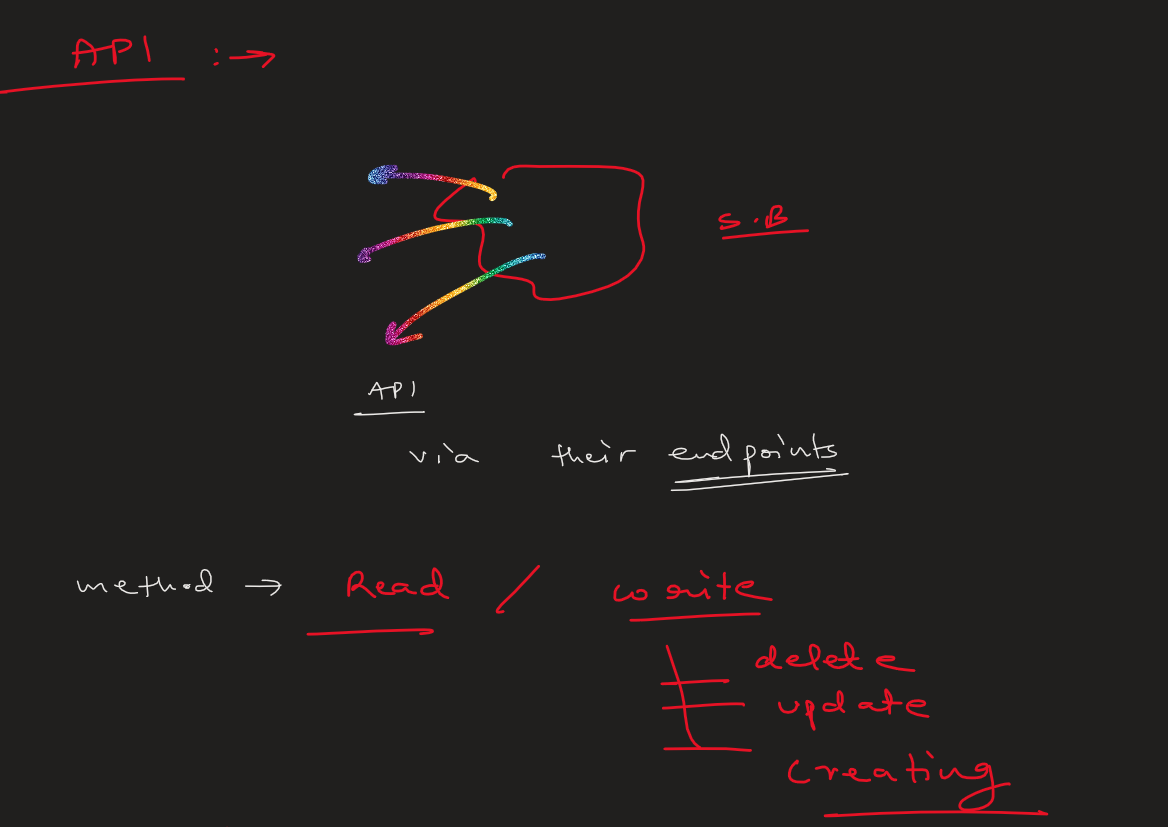 API :→
S.B
API
via their endpoints
method → Read / write
delete
update
creating